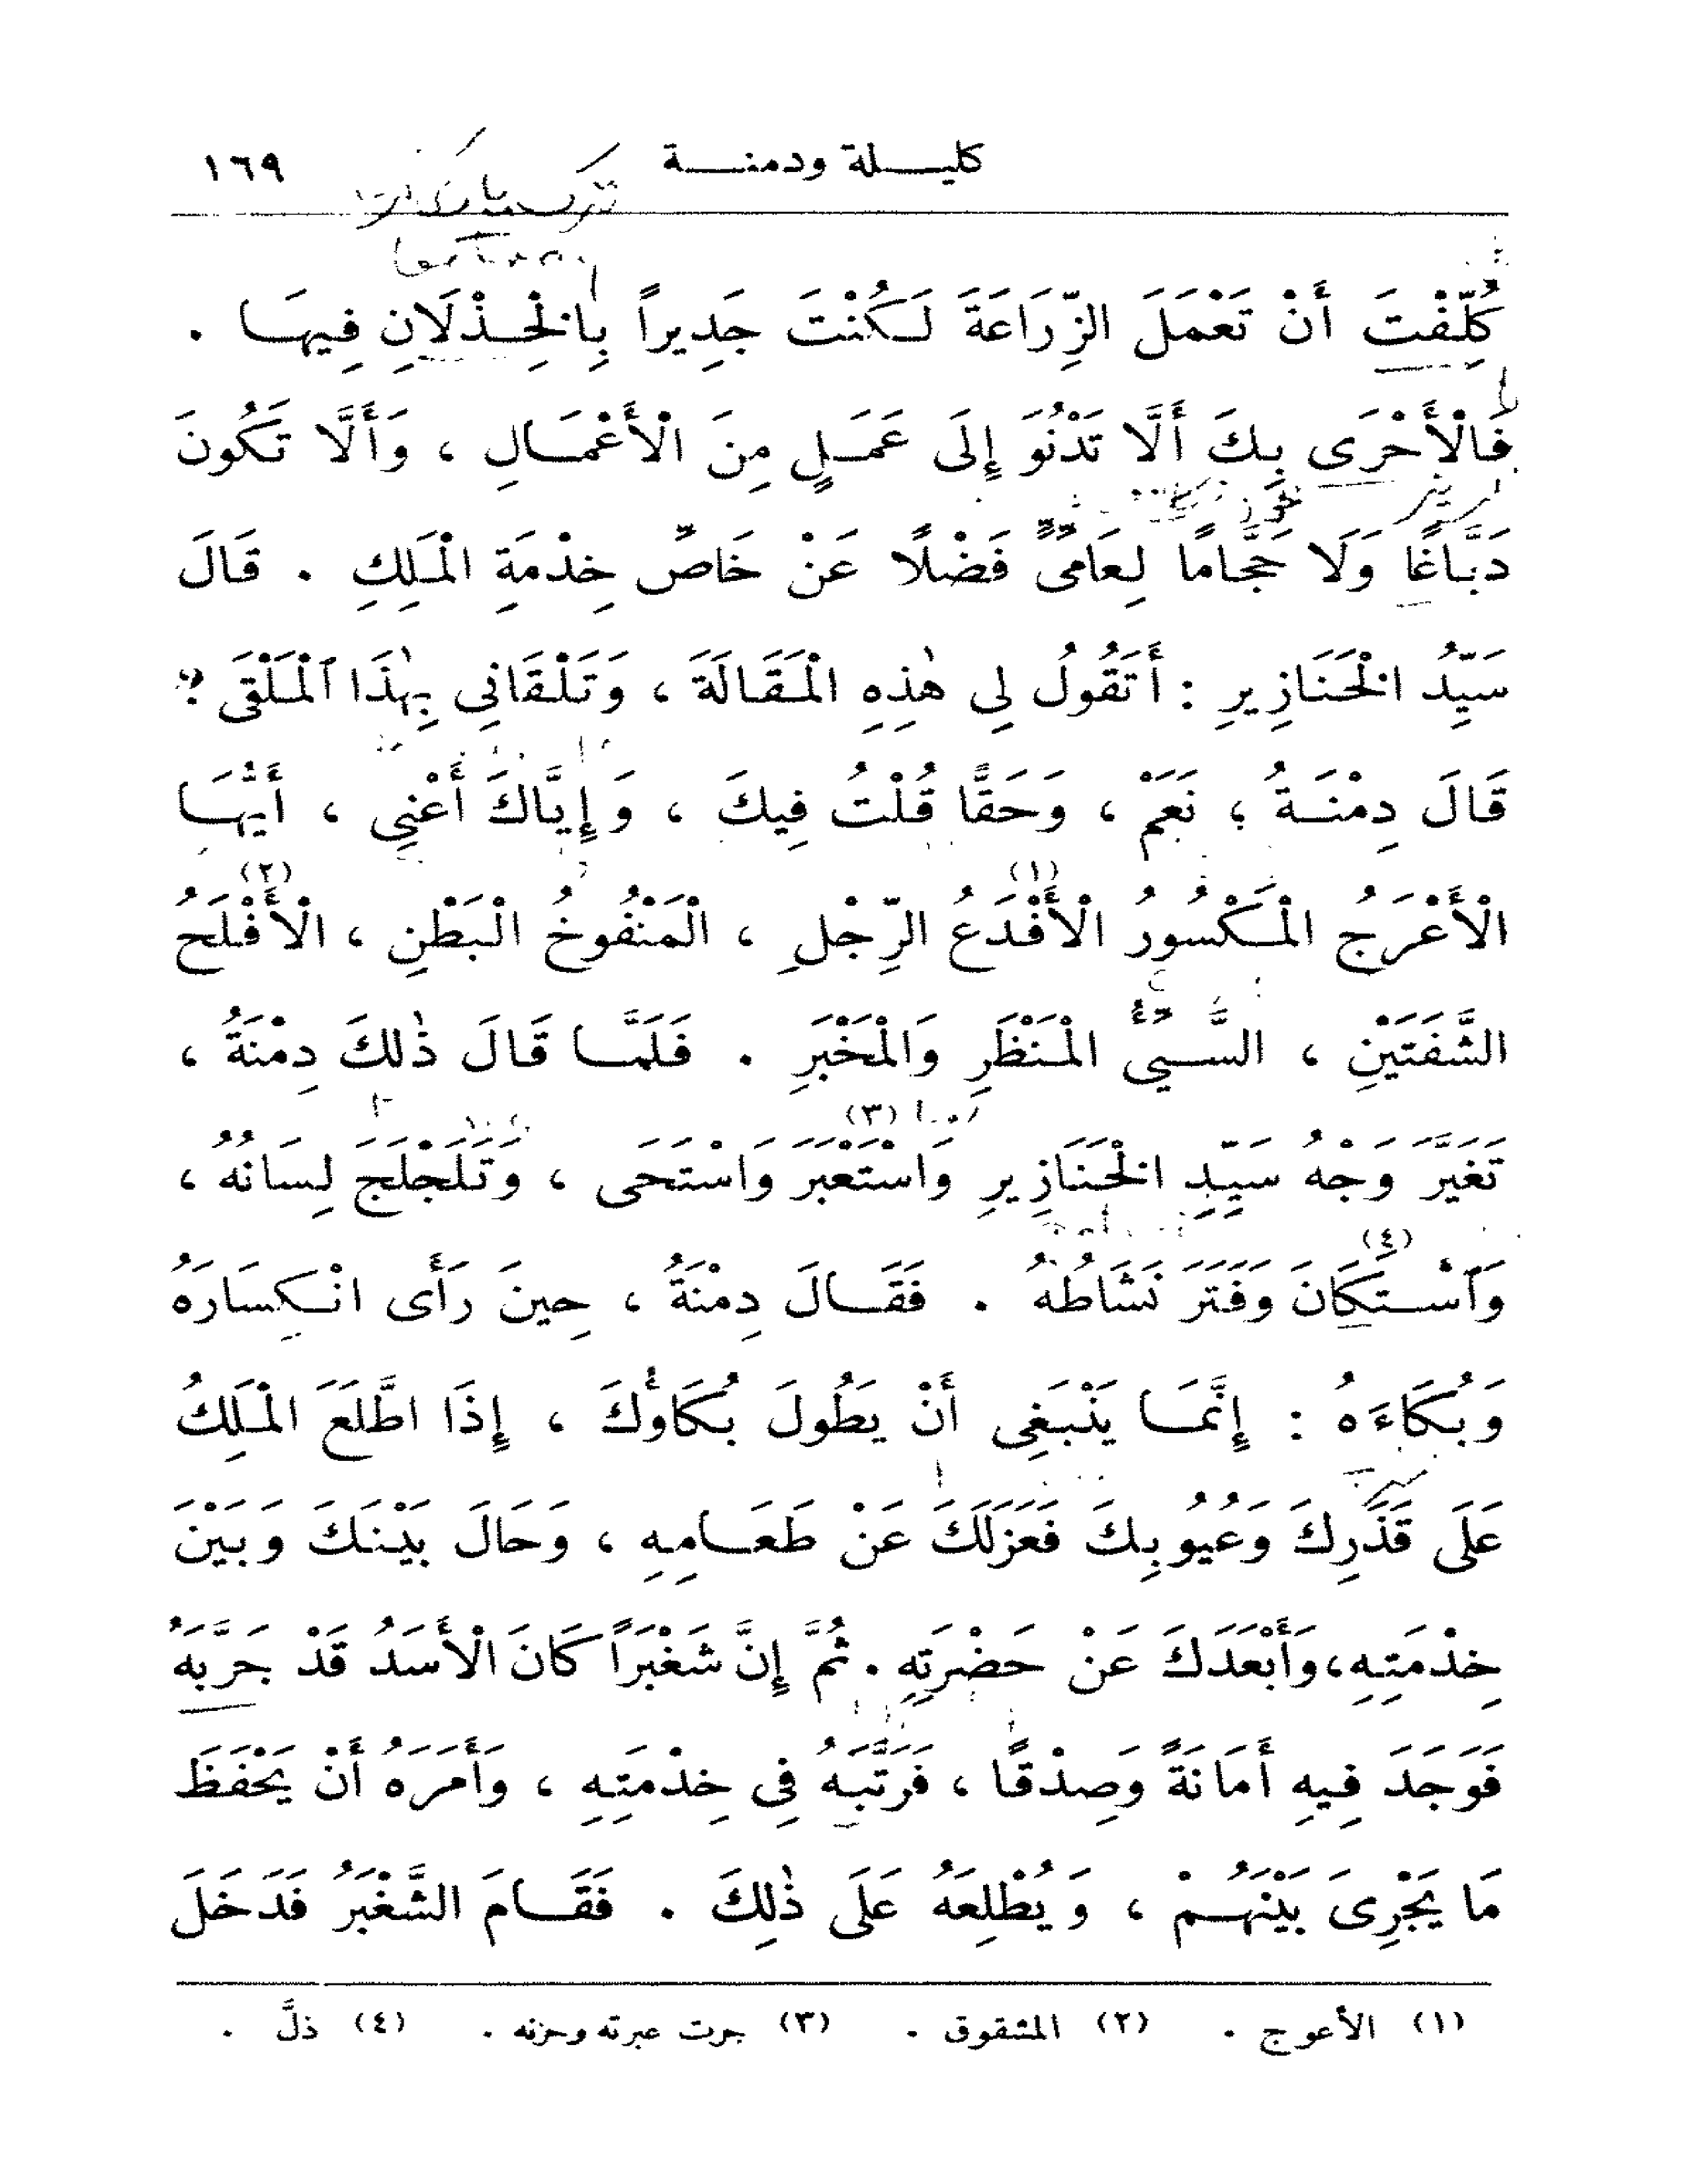 كليلة ودمنة
١٦٩
كُلِّفْتَ أَنْ تَعْمَلَ الزِّرَاعَةَ لَكُنْتَ جَدِيراً بِالْخِذْلَانِ فِيهَا .
فَالْأَحْرَى بِكَ أَلَّا تَدْنُوَ إِلَى عَمَلٍ مِنَ الْأَعْمَالِ ، وَأَلَّا تَكُونَ
دَبَّاغًا وَلَا حَجَّامًا لِعَامِّيٍّ فَضْلًا عَنْ خَاصِّ خِدْمَةِ الْمَلِكِ . قَالَ
سَيِّدُ الْخَنَازِيرِ : أَتَقُولُ لِى هٰذِهِ الْمَقَالَةَ ، وَتَلْقَانِى بِهٰذَا ٱلْمَلْقَى ؟
قَالَ دِمْنَةُ ؛ نَعَمْ ، وَحَقًّا قُلْتُ فِيكَ ، وَإِيَّاكَ أَعْنِى ، أَيُّهَا
الْأَعْرَجُ الْمَكْسُورُ الْأَفْدَعُ (١) الرِّجْلِ ، الْمَنْفُوخُ الْبَطْنِ ، الْأَفْلَحُ (٢)
الشَّفَتَيْنِ ، السَّيِّئُ الْمَنْظَرِ وَالْمَخْبَرِ . فَلَمَّا قَالَ ذٰلكَ دِمْنَةُ ،
تَغَيَّرَ وَجْهُ سَيِّدِ الْخَنَازِيرِ وَاسْتَعْبَرَ (٣) وَاسْتَحَى ، وَتَلَجْلَجَ لِسَانُهُ ،
وَٱسْتَكَانَ (٤) وَفَتَرَ نَشَاطُهُ . فَقَالَ دِمْنَةُ ، حِينَ رَأَى انْكِسَارَهُ
وَبُكَاءَهُ : إِنَّمَا يَنْبَغِى أَنْ يَطُولَ بُكَاؤُكَ ، إِذَا اطَّلَعَ الْمَلِكُ
عَلَى قَذَرِكَ وَعُيُوبِكَ فَعَزَلَكَ عَنْ طَعَامِهِ ، وَحَالَ بَيْنَكَ وَبَيْنَ
خِدْمَتِهِ،وَأَبْعَدَكَ عَنْ حَضْرَتِهِ . ثُمَّ إِنَّ شَغْبَرًا كَانَ الْأَسَدُ قَدْ جَرَّبَهُ
فَوَجَدَ فِيهِ أَمَانَةً وَصِدْقًا ، فَرَتَّبَهُ فِى خِدْمَتِهِ ، وَأَمَرَهُ أَنْ يَحْفَظَ
مَا يَجْرِىَ بَيْنَهُمْ ، وَيُطْلِعَهُ عَلَى ذٰلِكَ . فَقَامَ الشَّغْبَرُ فَدَخَلَ
(١) الأعوج . (٢) المشقوق . (٣) جرت عبرته وحزنه . (٤) ذلَّ .